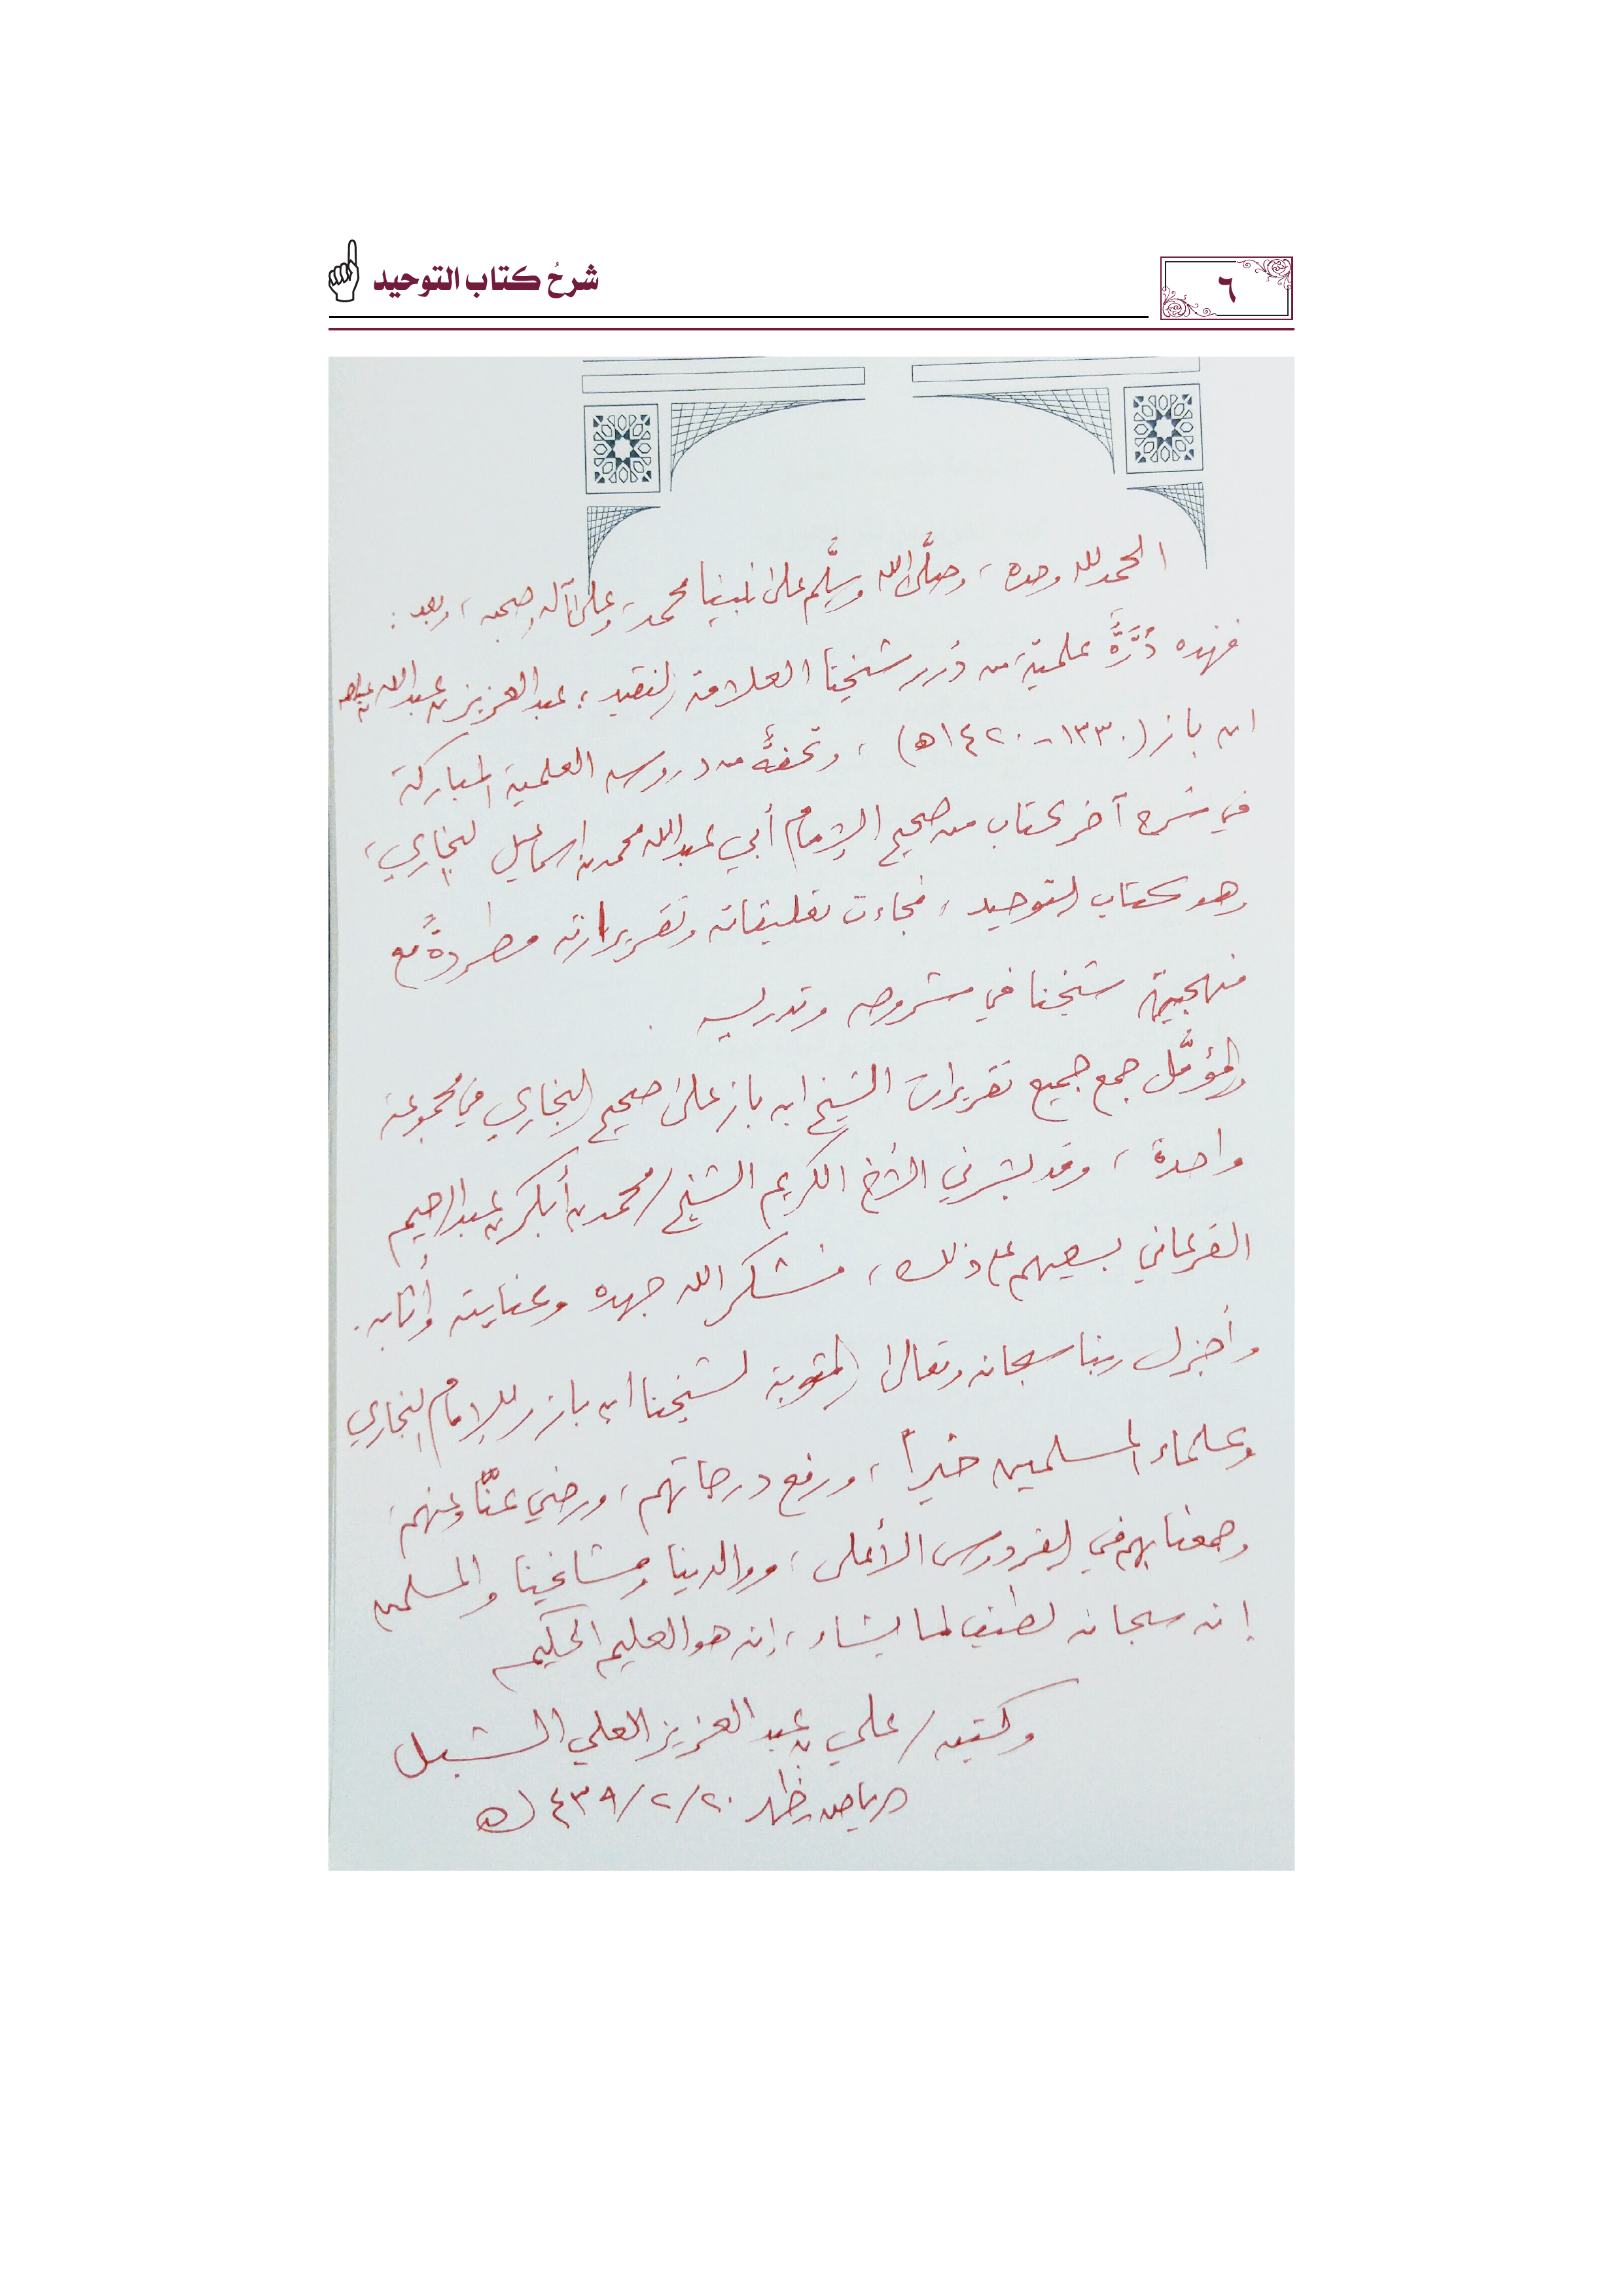 ٦
شرحُ كتاب التوحيد
الحمد لله وحده، وصلَّى الله وسلَّم على نبينا محمد، وعلى آله وصحبه، وبعد:
فهذه دُرَّةٌ علميّة من دُرر شيخنا العلامة الفقيد: عبد العزيز بن عبد الله
ابن باز (١٣٣٠-١٤٢٠هـ)، وتحفةٌ من دروسه العلمية المباركة
في شرح آخر كتاب من صحيح الإمام أبي عبد الله محمد بن إسماعيل البخاري،
وهو كتاب التوحيد، فجاءت تعليقاته وتقريراته مطردةً مع
منهجية شيخنا في شروحه وتدريسه.
والمؤمَّل جمع جميع تقريرات الشيخ ابن باز على صحيح البخاري في مجموعة
واحدة، وقد بشرني الأخ الكريم الشيخ/محمد بن أبكر بن عبد الرحيم
الفرغاني بسعيهم على ذلك، فشكر الله جهده وعنايته وأثابه.
وأجزل ربنا سبحانه وتعالى المثوبة لشيخنا ابن باز وللإمام البخاري
وعلماء المسلمين خيراً، ورفع درجاتهم، ورضي عنّا وعنهم،
وجمعنا بهم في الفردوس الأعلى، ووالدينا ومشايخنا والمسلمين
إنه سبحانه لطيف لما يشاء، إنه هو العليم الحكيم
وكتبه/علي بن عبد العزيز العلي الشبل
ظهر ٢٠/٢/١٤٣٩هـ